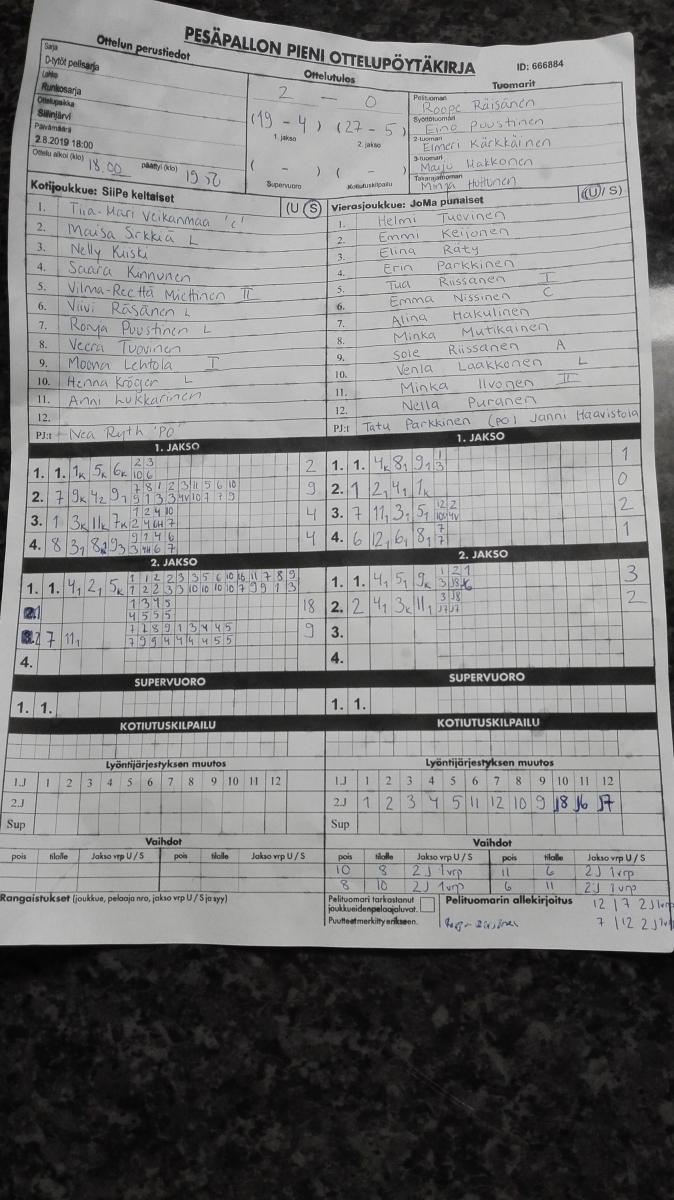 PESÄPALLON PIENI OTTELUPÖYTÄKIRJA ID: 666884
Ottelun perustiedot
Sarja
D-tytöt pelisarja
Lohko
Runkosarja
Ottelupaikka
Siilinjärvi
Päivämäärä
2.8.2019 18:00
Ottelu alkoi (klo) 18.00 päättyi (klo)
Ottelutulos
2 — 0
(19 - 4) (27 - 5)
1. jakso 2. jakso
( - ) ( - )
Supervuoro Kotiutuskilpailu
Tuomarit
Pelituomari
Roope Räisänen
Syöttötuomari
Eino Puustinen
2-tuomari
Elmeri Kärkkäinen
3-tuomari
Maiju Hakkonen
Takarajatuomari
Minja Huttunen
Kotijoukkue: SiiPe keltaiset (U / S)
1. Tiia-Mari Veikanmaa 'C'
2. Maisa Sirkkiä L
3. Nelly Kuiski
4. Saara Kinnunen
5. Vilma-Reettä Miettinen II
6. Viivi Räsänen L
7. Ronja Puustinen L
8. Veera Tuovinen
9. Moona Lehtola I
10. Henna Kröger L
11. Anni Lukkarinen
12.
PJ:t Nea Ryth 'PO'
Vierasjoukkue: JoMa punaiset (U / S)
1. Helmi Tuovinen
2. Emmi Keijonen
3. Elina Räty
4. Erin Parkkinen
5. Tua Riissanen I
6. Emma Nissinen C
7. Alina Hakulinen
8. Minka Mutikainen
9. Sole Riissanen A
10. Venla Laakkonen L
11. Minka Ilvonen II
12. Nella Puranen
PJ:t Tatu Parkkinen (PO) Janni Haavistola
1. JAKSO
1. 1. 1K 5K 6K 2 3 2
10 6
2. 7 9K 4 2 9 1 9
3. 1 3K 11K 7K 1 2 4 10 4
4. 8 3 1 4
2. JAKSO
1. 1. 4 1 2 1 5K 1 1 2 2 3 3 5 6 10 10 11 7 8 9
1 2 2 3 3 10 10 10 10 7 9 9 1 3
1 3 4 5 18
4 5 5 5
7 11 1 9
4.
SUPERVUORO
1. 1.
KOTIUTUSKILPAILU
1. JAKSO
1. 1. 4K 8 1 9 1 1 1
3
2. 1 2 1 4 1 1K 0
3. 7 11 1 3 1 5 1 12 2 2
4. 6 12 1 6 1 8 1 7 1
7
2. JAKSO
1. 1. 4 1 5 1 9K 1 2 1 3
2. 2 4 1 3K 11 1 2
3.
4.
SUPERVUORO
1. 1.
KOTIUTUSKILPAILU
Lyöntijärjestyksen muutos
1.J 1 2 3 4 5 6 7 8 9 10 11 12
2.J
Sup
Lyöntijärjestyksen muutos
1.J 1 2 3 4 5 6 7 8 9 10 11 12
2.J 1 2 3 4 5 11 12 10 9 J8 J6 J7
Sup
Vaihdot
pois tilalle Jakso vrp U / S pois tilalle Jakso vrp U / S
Vaihdot
pois tilalle Jakso vrp U / S pois tilalle Jakso vrp U / S
10 8 2J 1vrp 11 6 2J 1vrp
8 10 2J 1vrp 6 11 2J 1vrp
12 17 2J 1vrp
7 12 2J 1vrp
Rangaistukset (joukkue, pelaaja nro, jakso vrp U / S ja syy)
Pelituomari tarkastanut
joukkueiden pelaajaluvat.
Puutteet merkitty erikseen.
Pelituomarin allekirjoitus